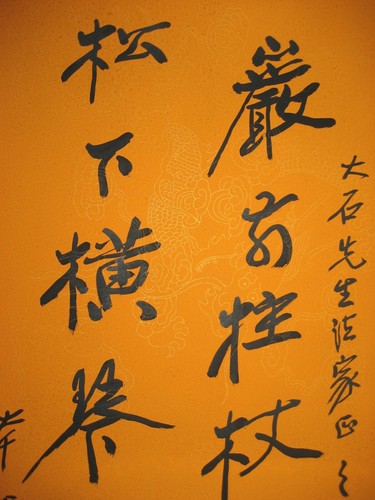 大石先生法家正之
巖前拄杖
松下横琴